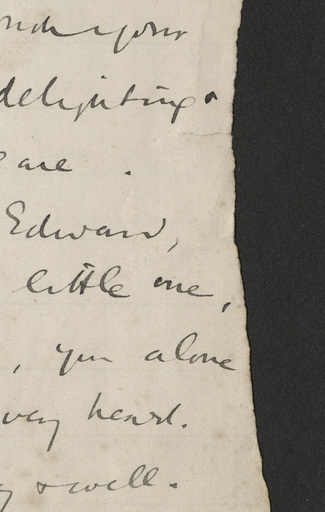 your
delighting
are .
Edward,
little one,
, you alone
heart.
& well.